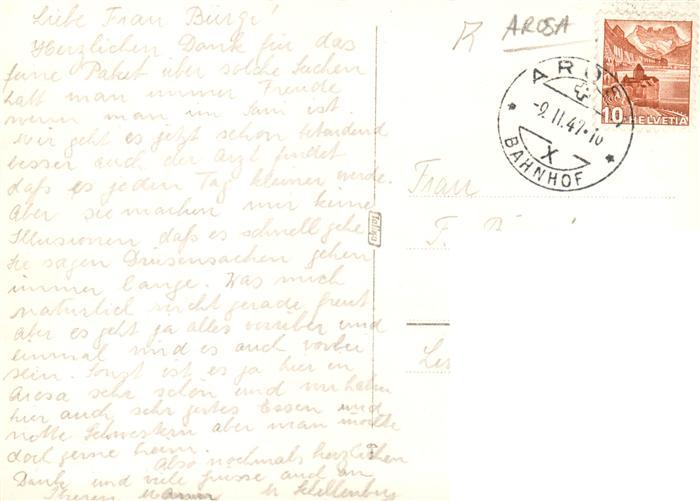 Liebe Frau Bürgi!
Herzlichen Dank für das
feine Paket über solche Sachen
hatt man immer Freude
wenn man im Sani ist.
Mir geht es jetzt schon bedeutend
besser auch der Arzt findet
dass es jeden Tag kleiner werde.
Aber sie machen mir keine
Illusionen dass es schnell gehe
sie sagen Drüsensachen gehen
immer lange. Was mich
natürlich nicht gerade freut
aber es geht ja alles vorüber und
einmal wird es auch vorbei
sein. Sonst ist es ja hier in
Arosa sehr schön und wir haben
hier auch sehr gutes Essen und
nette Schwestern aber man möchte
doch gerne heim.
Also nochmals herzlichen
Dank und viele Grüsse auch an
Ihren M. Schellenberg
Tallya
R AROSA
AROSA
-9.II.42-10
X
BAHNHOF
10 HELVETIA
Frau
F.